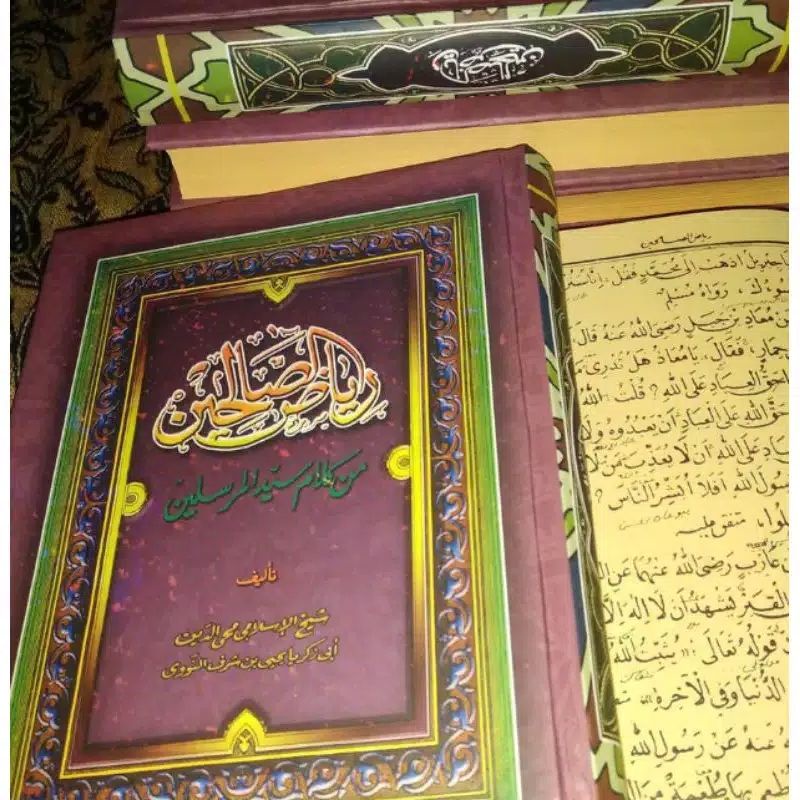 رياض الصالحين
رياض الصالحين
من كلام سيد المرسلين
تأليف
شيخ الإسلام محي الدين
أبي زكريا يحيى بن شرف النووي
رياض الصالحين
جبريل اذهب إلى محمد فقل إنا سنر
رواه مسلم
معاذ بن جبل رضي الله عنه قال
حمار، فقال، يا معاذ هل تدري ما
حق العباد على الله؟ قلت: الله
حق الله على العباد أن يعبدوه ولا
على الله أن لا يعذب من لا
رسول الله أفلا أبشر الناس؟
متفق عليه
عازب رضي الله عنهما عن الن
القبر تشهد أن لا إله إلا
قوله تعالى: يثبت الله
الدنيا وفي الآخرة
عنه عن رسول الله
بها طعمة من ال